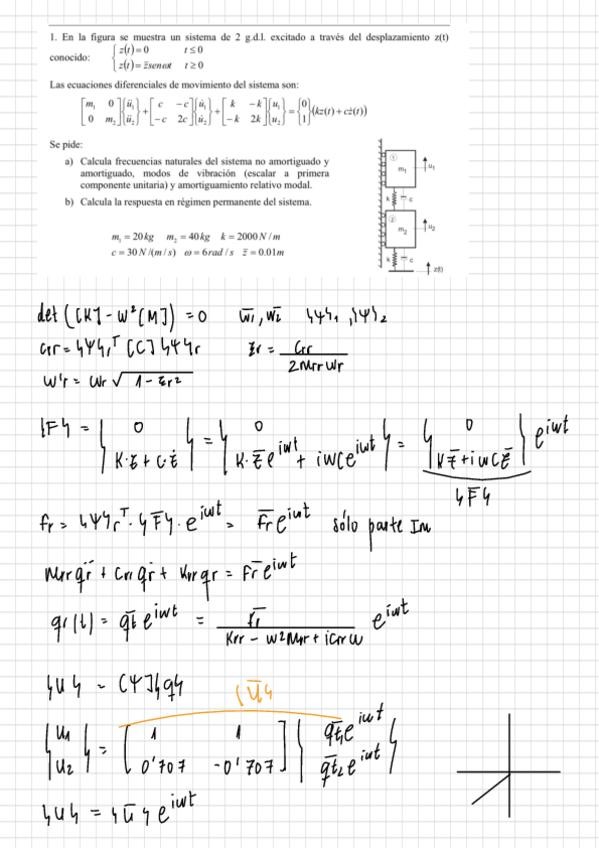 1. En la figura se muestra un sistema de 2 g.d.l. excitado a través del desplazamiento z(t)
conocido: { z(t) = 0 t ≤ 0
z(t) = z̄senωt t ≥ 0
Las ecuaciones diferenciales de movimiento del sistema son:
[m₁ 0; 0 m₂]{ü₁; ü₂} + [c -c; -c 2c]{u̇₁; u̇₂} + [k -k; -k 2k]{u₁; u₂} = {0; 1}(kz(t) + cż(t))
Se pide:
a) Calcula frecuencias naturales del sistema no amortiguado y
amortiguado, modos de vibración (escalar a primera
componente unitaria) y amortiguamiento relativo modal.
b) Calcula la respuesta en régimen permanente del sistema.
① m₁ u₁
k c
② m₂ u₂
k c
z(t)
m₁ = 20 kg m₂ = 40 kg k = 2000 N / m
c = 30 N /(m / s) ω = 6 rad / s z̄ = 0.01 m
det([K] - w²[M]) = 0 w̄₁, w̄₂ {ψ}₁, {ψ}₂
Crr = {ψ}rᵀ [C] {ψ}r ξr = Crr / 2Mrr wr
w'r = wr √(1 - ξr²)
{F} = {0; K·z + C·ż} = {0; K·z̄ e^iwt + iwC e^iwt} = {0; K z̄ + iwC z̄} e^iwt
{F̄}
fr = {ψ}rᵀ · {F̄} · e^iwt = F̄r e^iwt sólo parte Im
Mrr q̈r + Crr q̇r + Krr qr = F̄r e^iwt
qr(t) = q̄r e^iwt = F̄r / (Krr - w²Mrr + iCrr w) e^iwt
{u} = [ψ]{q} {ū}
{u₁; u₂} = [1 1; 0'707 -0'707] {q̄₁ e^iwt; q̄₂ e^iwt}
{u} = {ū} e^iwt